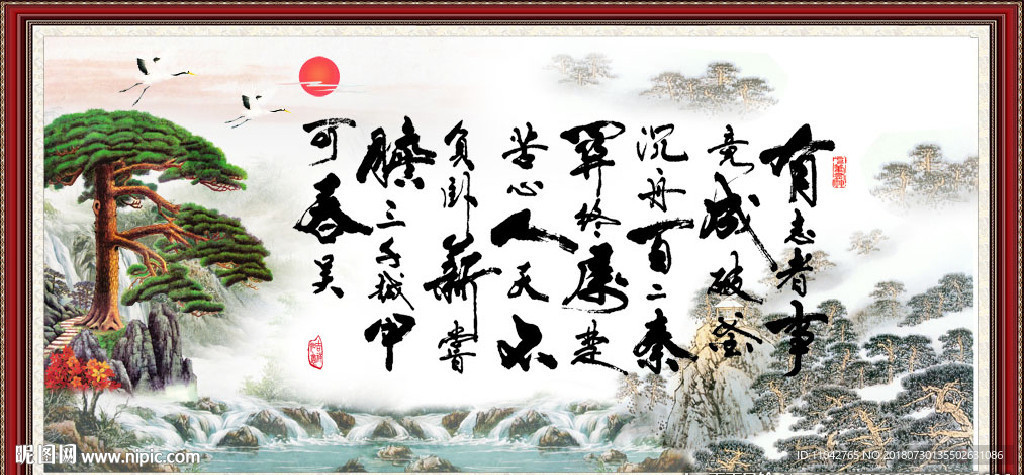 有志者事
竟成破釜
沉舟百二秦
關終屬楚
苦心人天不
負卧薪嘗
膽三千越甲
可吞吴
昵图网 www.nipic.com
ID:11842765 NO:20180730135502631086